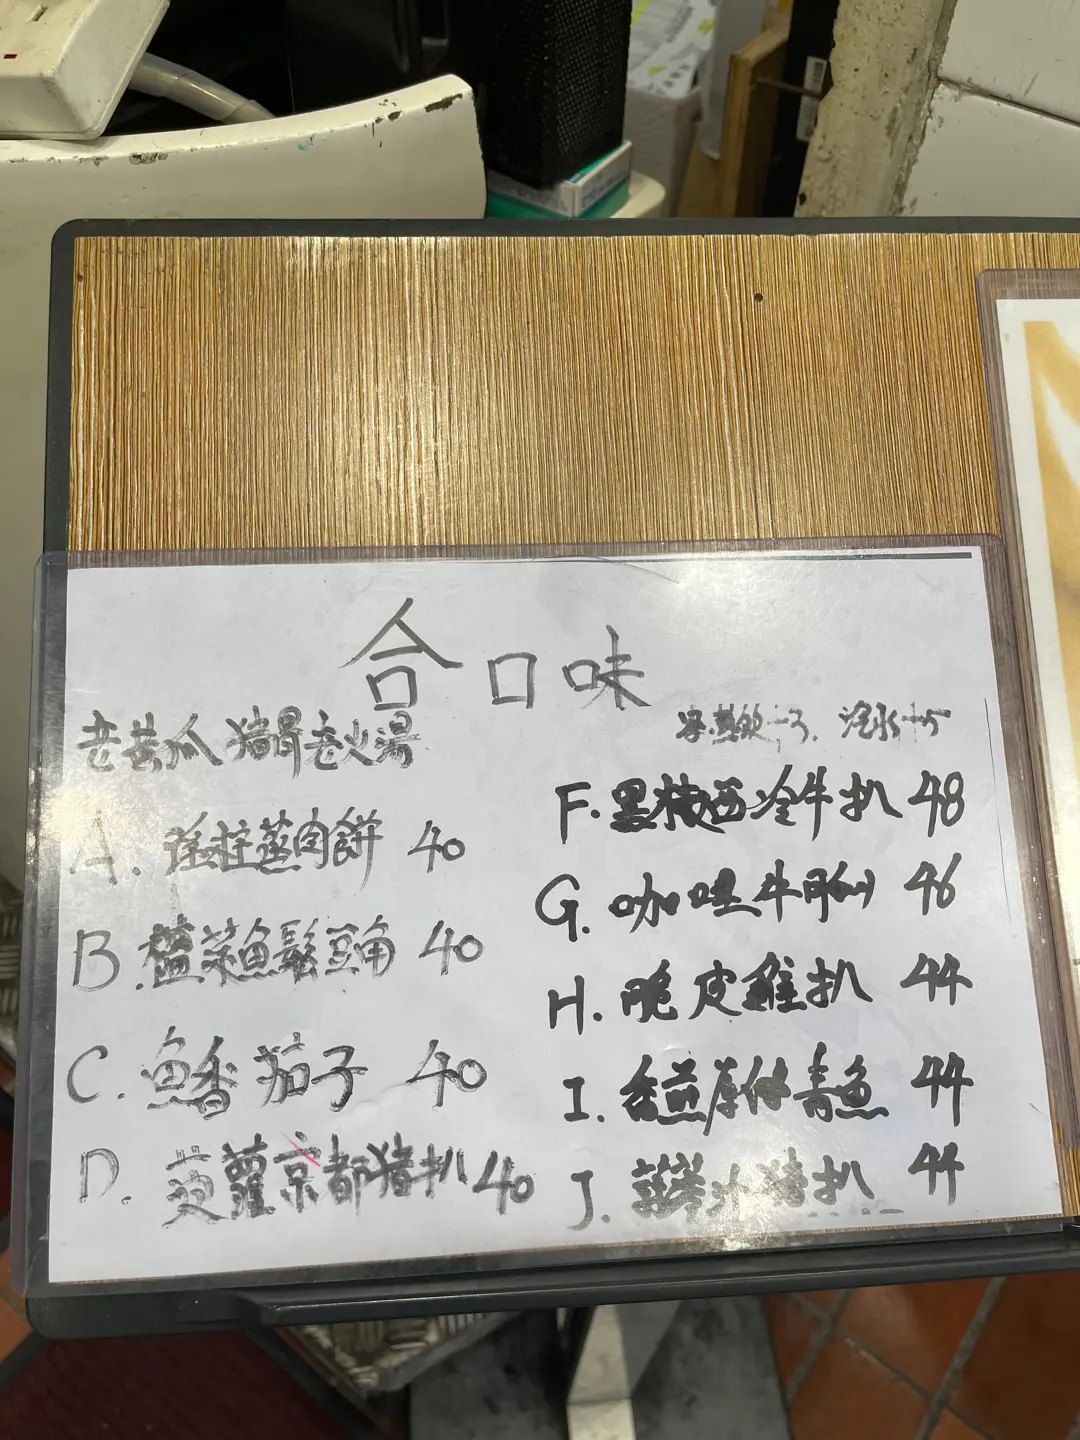 合口味
老黃瓜豬骨老火湯
跟熱飲+3, 冷飲+5
A. 瑤柱蒸肉餅 40
B. 欖菜魚鬆豆角 40
C. 魚香茄子 40
D. 菠蘿京都豬扒 40
F. 黑椒西冷牛扒 48
G. 咖哩牛腩 46
H. 脆皮雞扒 44
I. 香煎厚切青魚 44
J. 豬扒 44